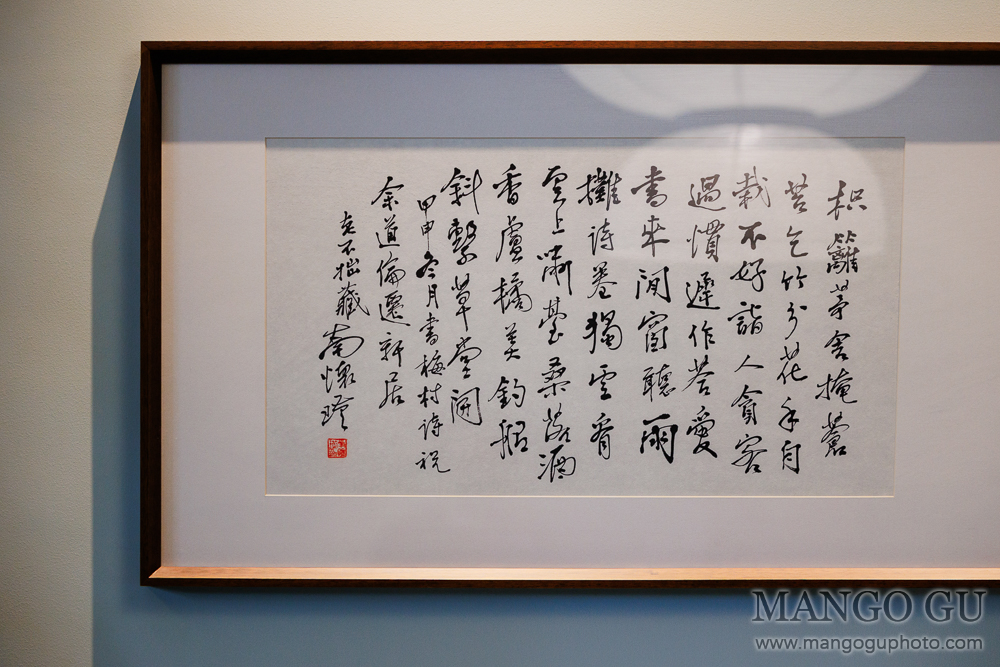 枳籬茅舍掩蒼
苔乞竹分花手自
栽不好詣人貪客
過慣遲作答愛
書來閒窗聽雨
攤詩卷獨看
雲上嘯臺桑落酒
香盧橘美釣船
斜繫草堂開
甲申冬月書梅村詩祝
余道倫遷新居
老不拙藏南懷瑾
MANGO GU
www.mangoguphoto.com